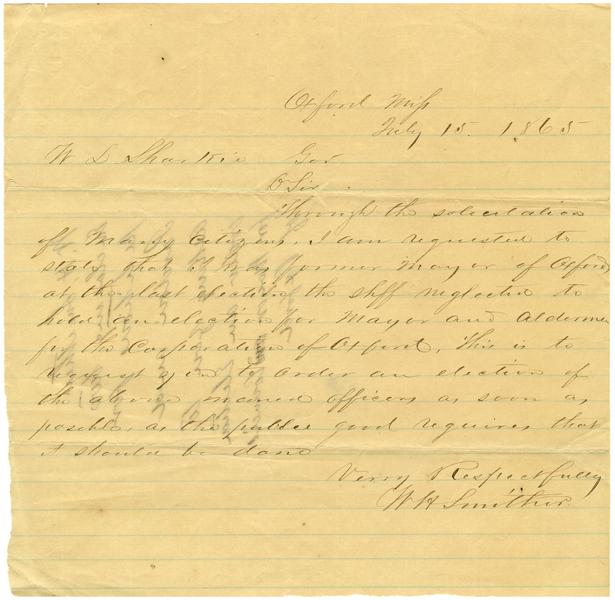 Oxford Miss
July 15. 1865
W L Sharkie Gov
D Sir.
Through the solicitation
of Many Citizens, I am requested to
state that I was former Mayor of Oxford
at the last election the shff neglected to
hold an election for Mayor and Aldermen
for the Corporation of Oxford, This is to
request you to order an election of
the above named officers as soon as
posible, as the public good requires that
it should be done
Verry Respectfully
W H Smither